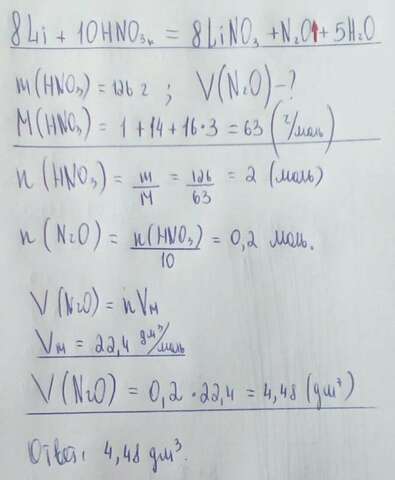 8Li + 10HNO₃ₖ = 8LiNO₃ + N₂O↑ + 5H₂O
m(HNO₃) = 126 г ; V(N₂O) - ?
M(HNO₃) = 1 + 14 + 16·3 = 63 (г/моль)
n (HNO₃) = m/M = 126/63 = 2 (моль)
n (N₂O) = n(HNO₃)/10 = 0,2 моль.
V (N₂O) = nVм
Vм = 22,4 дм³/моль
V(N₂O) = 0,2 · 22,4 = 4,48 (дм³)
Ответ: 4,48 дм³.